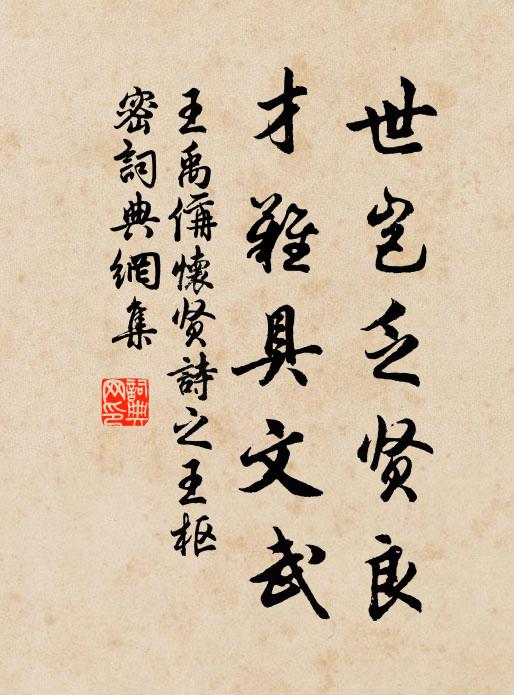 世岂乏贤良
才难具文武
王禹偁懷贤詩之王枢
密詞典網集
詞典
网印